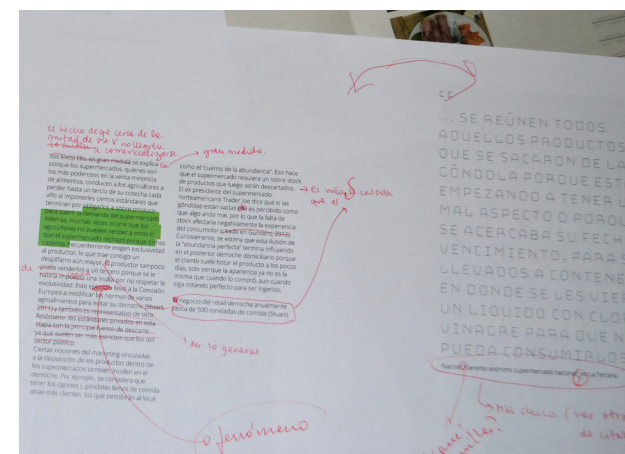 El hecho de que cerca de la
mitad de f y V no lleguen
a comercializarse
gran medida
(los kilos) Ello, en gran medida se explica
porque los supermercados, quienes son
los más poderosos en la venta minorista
de alimentos, conducen a los agricultores a
perder hasta un tercio de su cosecha cada
año al imponerles ciertos estándares que
terminan por obligarlos a sobre producir
para cubrir la demanda del supermercado.
Además, muchas veces ocurre que los
agricultores no pueden vender a otros lo
que el supermercado rechazó porque dichas
cadenas frecuentemente exigen exclusividad
al productor, lo que trae consigo un
despilfarro aún mayor, el productor tampoco
podía venderlos a un tercero porque se le
habría impuesto una multa por no respetar la
exclusividad. Este caso llevó a la Comisión
Europea a modificar las normas de varios
agroalimentos para evitar su derroche (Stuart,
2011) y también es representativo de otro
fenómeno: los estándares privados en esta
etapa son la principal fuente de descarte
ya que suelen ser más estrictos que los del
sector público.
Ciertas nociones del marketing vinculadas
a la disposición de los productos dentro de
los supermercados también inciden en el
derroche. Por ejemplo, se considera que
tener los cajones y góndolas llenos de comida
atrae más clientes, los que percibirán al local
de
Por lo general
o fenómeno
como el "cuerno de la abundancia". Eso hace
que el supermercado requiera un sobre stock
de productos que luego serán descartados.
El ex presidente del supermercado
norteamericano Trader Joe dice que si las
góndolas están vacías es percibido como
que algo anda mal, por lo que la falta de
stock afectaría negativamente la experiencia
del consumidor (citado en Gunders, 2012)
Curiosamente, se estima que esta ilusión de
la "abundancia perfecta" termina influyendo
en el posterior derroche domiciliario porque
el cliente suele botar el producto a los pocos
días, solo porque la apariencia ya no es la
misma que cuando lo compró, aun cuando
siga estando perfecto para ser ingerido.
negocio del retail derrocha anualmente
cerca de 500 toneladas de comida (Stuart)
Es
calcula
que el
... SE REÚNEN TODOS
AQUELLOS PRODUCTOS
QUE SE SACARON DE LA
GÓNDOLA PORQUE EST
EMPEZANDO A TENER
MAL ASPECTO O PORQU
SE ACERCABA SU FECH
VENCIMIENTO, PARA S
LLEVADOS A CONTENE
EN DONDE SE LES VIE
UN LÍQUIDO CON CLO
VINAGRE PARA QUE N
PUEDA CONSUMIRLOS
Fuente: Gerente anónimo supermercado nacional en La Tercera.
Más chico (ver otra
de cita